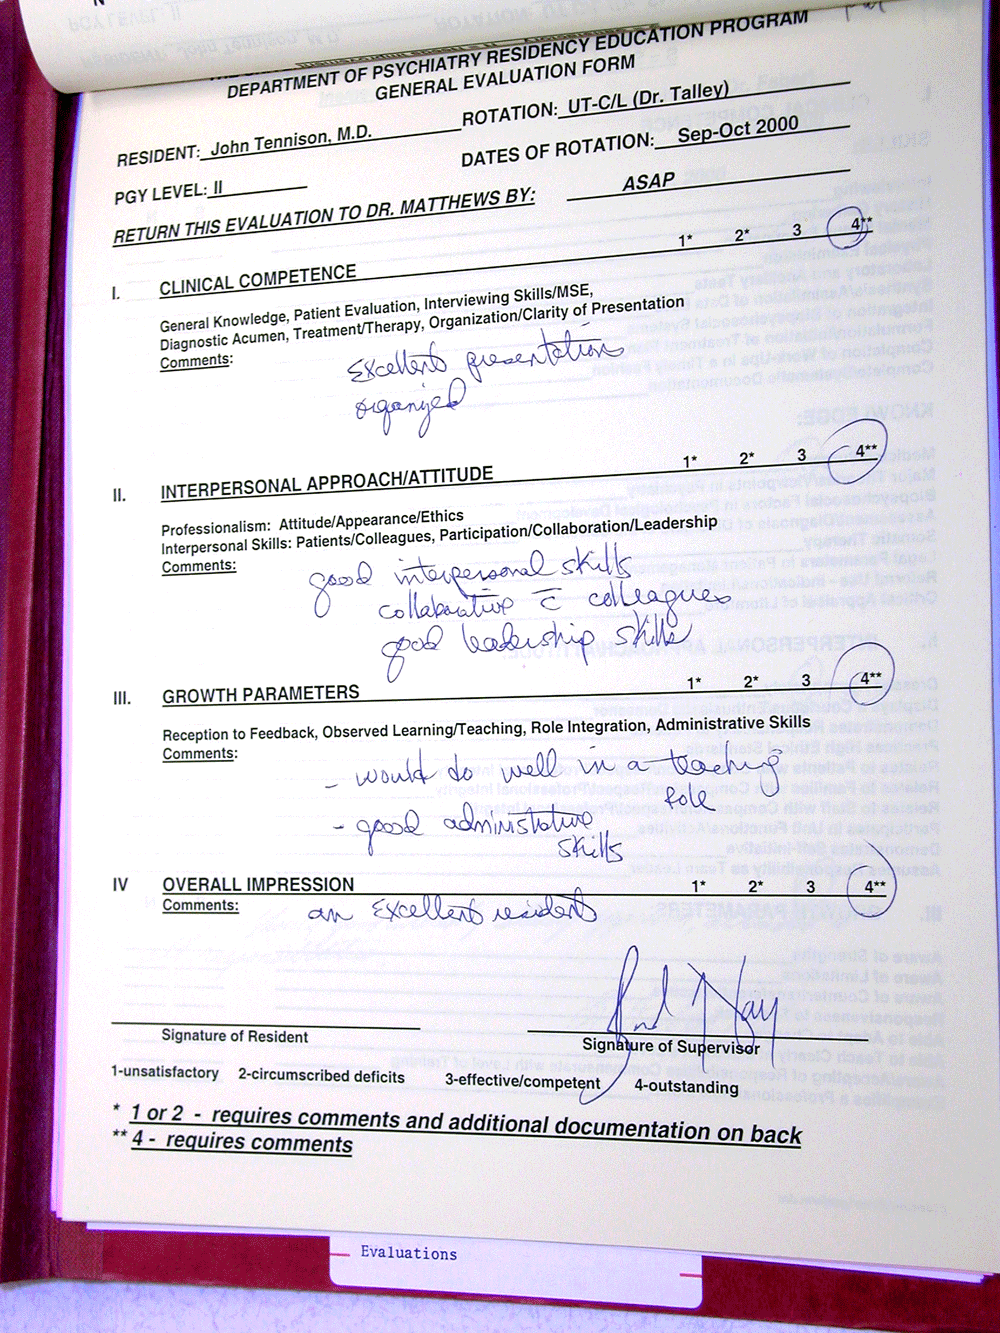 DEPARTMENT OF PSYCHIATRY RESIDENCY EDUCATION PROGRAM
GENERAL EVALUATION FORM
RESIDENT: John Tennison, M.D.
ROTATION: UT-C/L (Dr. Talley)
PGY LEVEL: II
DATES OF ROTATION: Sep-Oct 2000
RETURN THIS EVALUATION TO DR. MATTHEWS BY: ASAP
I. CLINICAL COMPETENCE 1* 2* 3 4**
General Knowledge, Patient Evaluation, Interviewing Skills/MSE,
Diagnostic Acumen, Treatment/Therapy, Organization/Clarity of Presentation
Comments:
Excellent presentation
organized
II. INTERPERSONAL APPROACH/ATTITUDE 1* 2* 3 4**
Professionalism: Attitude/Appearance/Ethics
Interpersonal Skills: Patients/Colleagues, Participation/Collaboration/Leadership
Comments:
good interpersonal skills
collaborative c̄ colleagues
good leadership skills
III. GROWTH PARAMETERS 1* 2* 3 4**
Reception to Feedback, Observed Learning/Teaching, Role Integration, Administrative Skills
Comments:
- would do well in a teaching
role
- good administrative
skills
IV OVERALL IMPRESSION 1* 2* 3 4**
Comments: an Excellent resident
Signature of Resident
Signature of Supervisor
1-unsatisfactory 2-circumscribed deficits 3-effective/competent 4-outstanding
* 1 or 2 - requires comments and additional documentation on back
** 4 - requires comments
Evaluations